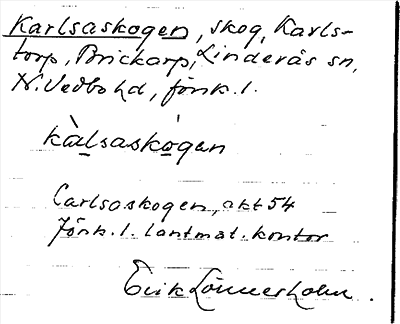 Karlsaskogen, skog, Karls-
torp, Brickarp, Linderås sn,
N. Vedbo hd, Jönk. l.
kàlsaskógan
Carlsaskogen, akt 54
Jönk. l. lantmät. kontor
Erik Lönnerholm.